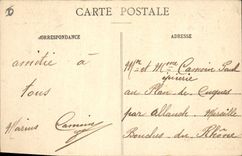 CARTE POSTALE
CORRESPONDANCE
ADRESSE
amitié à
tous
Marius Camoin
Mr et Mme Camoin Paul
épicerie
au Plan de Cuques
par Allauch Marseille
Bouches du Rhône